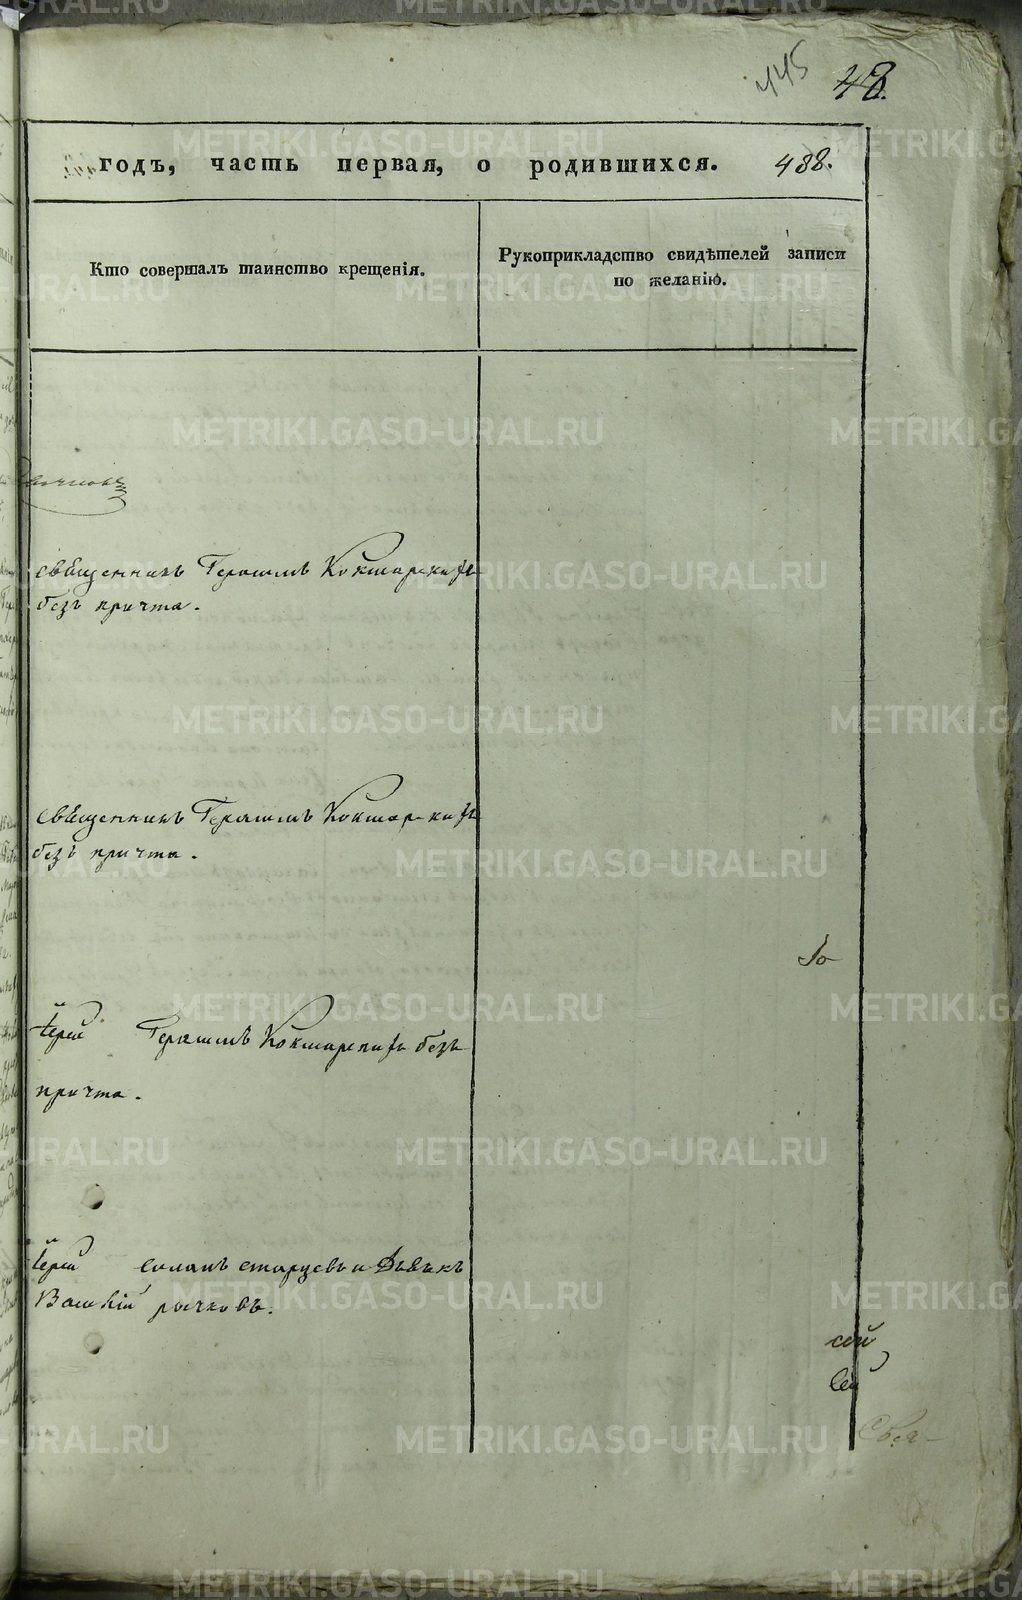 445
48.
годъ, часть первая, о родившихся. 488.
Кто совершалъ таинство крещенія.
Рукоприкладство свидѣтелей записи
по желанію.
священникъ Герасимъ Кокшарскій
безъ причта.
священникъ Герасимъ Кокшарскій
безъ причта.
Іерей Герасимъ Кокшарскій безъ
причта.
Іерей Симонъ старцевъ и Дьячекъ
рычковъ.
METRIKI.GASO-URAL.RU